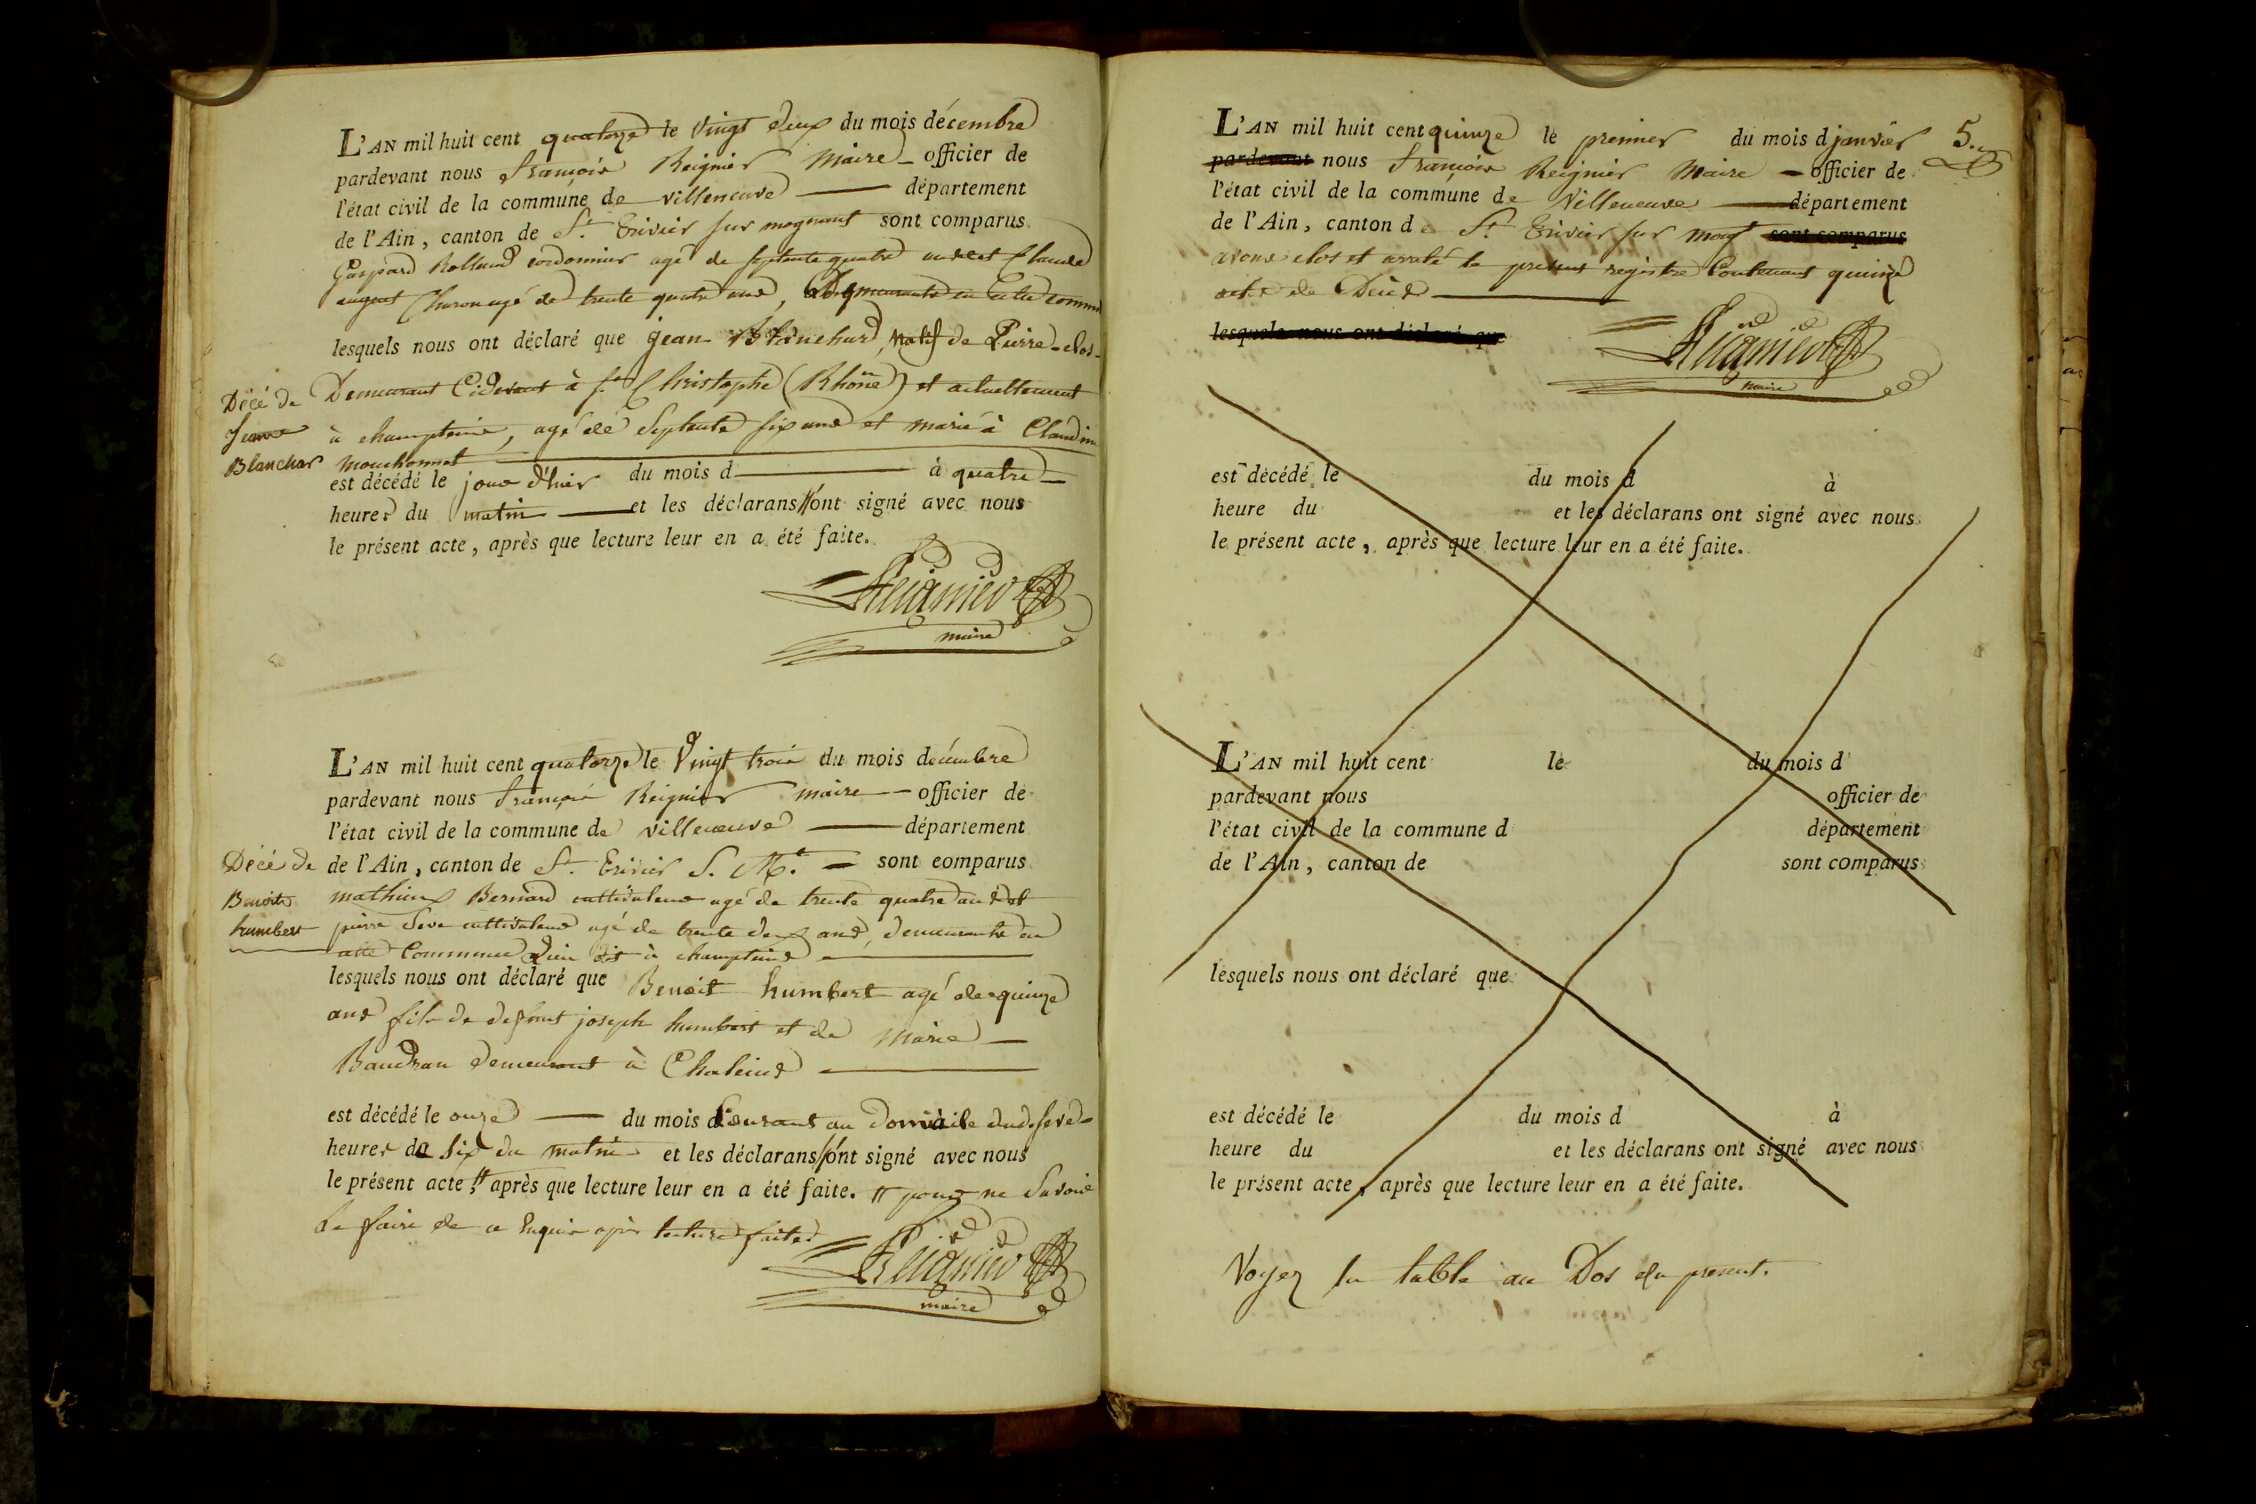 L'AN mil huit cent quatorze le Vingt deux du mois décembre
pardevant nous François Reignier Maire officier de
l'état civil de la commune de villeneuve département
de l'Ain, canton de St. Trivier sur mognant sont comparus
Gaspard Rolland cordonnier agé de septante quatre ans et Claude
Charon agé de trente quatre ans, demeurants en cette commune
lesquels nous ont déclaré que jean Blanchard, natif de Pierre-clos
Décé de
Jean
Blanchar
Demeurant Cidevant à St. Christophe (Rhône) et actuellement
à champteins, agé de Septante six ans et marié à Claudine
Mouchonnat
est décédé le jour d'hier du mois d à quatre
heures du matin et les déclarans ont signé avec nous
le présent acte, après que lecture leur en a été faite.
Reignier
maire
L'AN mil huit cent quatorze le Vingt trois du mois décembre
pardevant nous François Reignier maire officier de
l'état civil de la commune de villeneuve département
Décé de
Benoit
humbert
de l'Ain, canton de St. Trivier S. Mt. sont comparus
mathieu Bernard cultivateur agé de trente quatre ans et
pierre Seve cultivateur agé de trente deux ans, demeurants en
cette Commune Lieu dit à champteins
lesquels nous ont déclaré que Benoit humbert agé de quinze
ans fils de defunt joseph humbert et de Marie
Baudran demeurant à Chaleins
est décédé le onze du mois Courant au Domicile dud. Seve
heures de six du matin et les déclarans ont signé avec nous
le présent acte, après que lecture leur en a été faite. pour ne Savoir
Le faire de ce Enquis après lecture faite
Reignier
maire
5.
L'AN mil huit cent quinze le premier du mois d janvier
pardevant nous François Reignier Maire officier de
l'état civil de la commune de Villeneuve département
de l'Ain, canton de St. Trivier sur Mogt sont comparus
avons clos et arrêté le présent registre Contenant quinze
acte de Décès
lesquels nous ont déclaré que
Reignier
maire
est décédé le du mois d à
heure du et les déclarans ont signé avec nous
le présent acte, après que lecture leur en a été faite.
L'AN mil huit cent le du mois d
pardevant nous officier de
l'état civil de la commune d département
de l'Ain, canton de sont comparus
lesquels nous ont déclaré que
est décédé le du mois d à
heure du et les déclarans ont signé avec nous
le présent acte, après que lecture leur en a été faite.
Voyez la table au Dos du present.